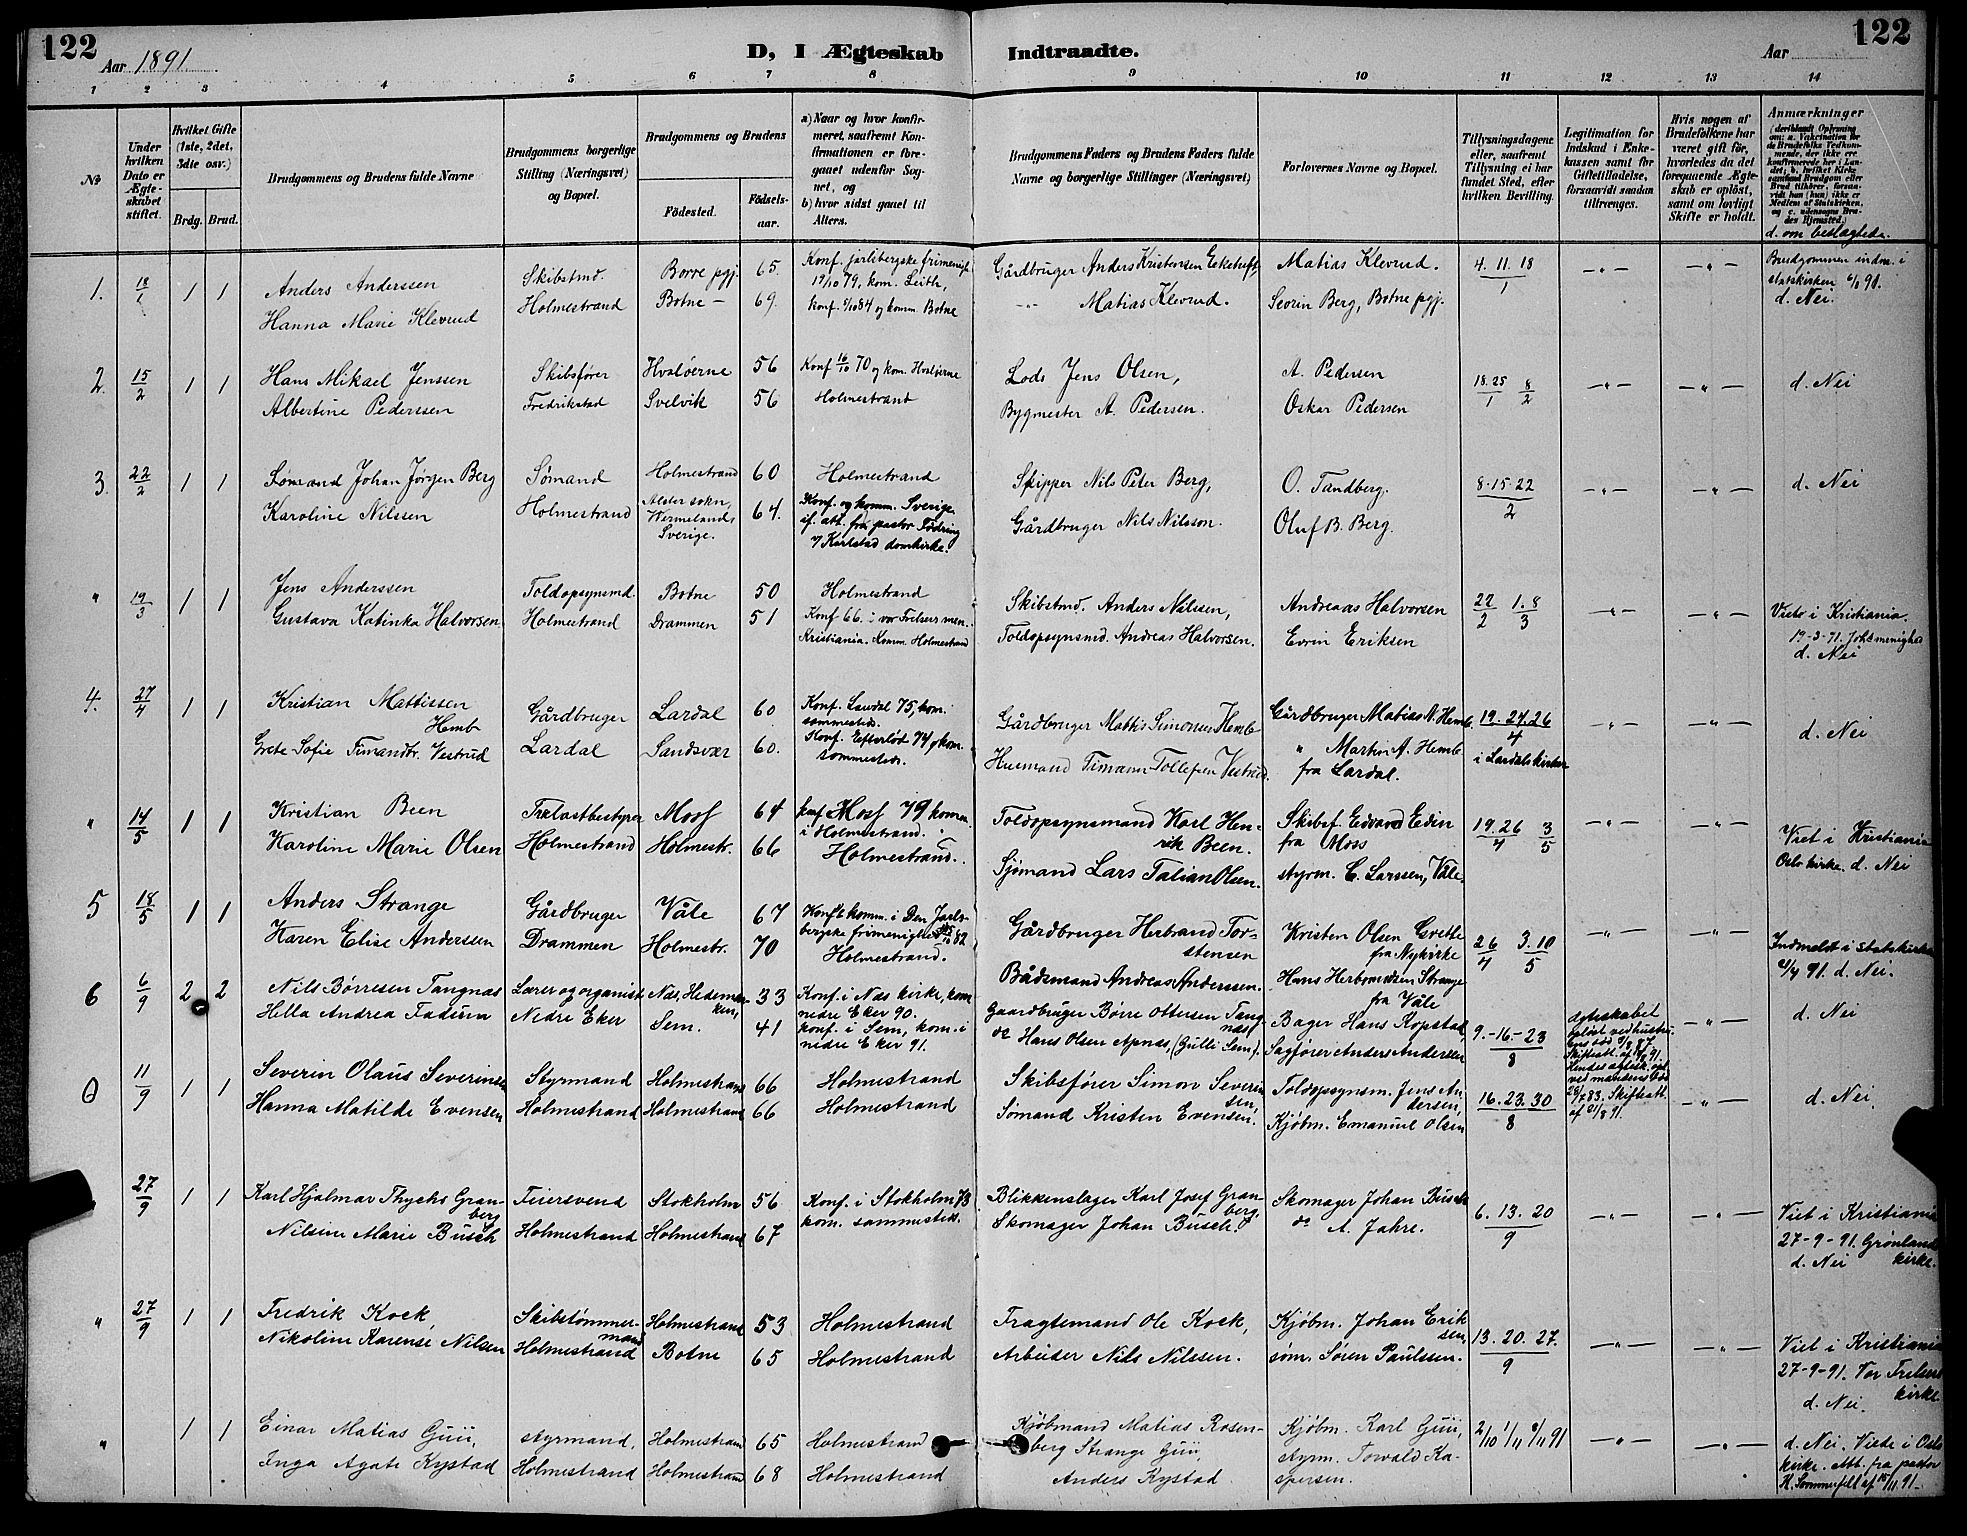 122
Aar 1891
D, I Ægteskab Indtraadte.
Aar
122
1 2 3 4 5 6 7 8 9 10 11 12 13 14
No
Under hvilken Dato er Ægteskabet stiftet.
Hvilket Gifte (1ste, 2det, 3die osv.)
Brdg. Brud.
Brudgommens og Brudens fulde Navne
Brudgommens borgerlige Stilling (Næringsvei) og Bopæl.
Brudgommens og Brudens
Fødested.
Fødselsaar.
a) Naar og hvor konfirmeret, saafremt Konfirmationen er foregaaet udenfor Sognet, og
b) hvor sidst gaaet til Alters.
Brudgommens Faders og Brudens Faders fulde Navne og borgerlige Stillinger (Næringsvei)
Forlovernes Navne og Bopæl.
Tillysningsdagene eller, saafremt Tillysning ei har fundet Sted, efter hvilken Bevilling.
Legitimation for Indskud i Enkekassen samt for Giftetilladelse, forsaavidt saadan tiltrænges.
Hvis nogen af Brudefolkene har været gift før, hvorledes da det foregaaende Ægteskab er opløst, samt om lovligt Skifte er holdt.
Anmærkninger (deriblandt Oplysning om: a. Vaksination for de Brudefolks Vedkommende, der ikke ere konfirmerede her i Landet; b. hvilket Kirkesamfund Brudgom eller Brud tilhører, forsaavidt han (hun) ikke er Medlem af Statskirken, og c. udensogns Brudes Hjemsted.)
d. om beslægtede.
1. 18/1 1 1
Anders Anderssen
Hanna Marie Klevrud
Skibstmd.
Holmestrand
Borre pgj. 65.
Botne — 69.
Konf. jarlsbergske frimenigh.
19/10 79, kom. Leith,
Konf. 5/10 84 og komm. Botne
Gårdbruger Anders Kristensen
-"- Matias Klevrud.
Matias Klevrud.
Severin Berg, Botne pgj.
4. 11. 18
1
—"—
—"—
Brudgommen indm. i
statskirken
d. Nei.
2. 15/2 1 1
Hans Mikael Jenssen
Albertine Pederssen
Skibsfører
Fredrikstad
Hvaløerne 56
Svelvik 56
Konf 16/10 70 og kom. Hvaløerne
Holmestrand
Lods Jens Olsen,
Bygmester A. Pedersen.
A. Pedersen
Oskar Pedersen
18. 25 8
1 2
—"—
—"—
d. Nei
3. 22/2 1 1
Sømand Johan Jørgen Berg
Karoline Nilssen
Sømand
Holmestrand
Holmestrand 60
Alster sokn,
Wermeland,
Sverige. 64.
Holmestrand
Konf. og komm. Sverige
if. att. fra pastor
v/ Karlstad domkirke.
Skipper Nils Peter Berg,
Gårdbruger Nils Nilsson.
O. Tandberg.
Oluf B. Berg.
8. 15. 22
2
—"—
—"—
d. Nei
" 19/3 1 1
Jens Anderssen
Gustava Katinka Halvorsen
Toldopsynsmd.
Holmestrand
Botne 50
Drammen 51
Holmestrand
Konf 66. i vor Frelsers men.
Kristiania. Komm. Holmestrand
Skibstmd. Anders Nilssen,
Toldopsynsmd. Andreas Halvorsen.
Andreas Halvorsen
Even Eriksen
22 1. 8
2 3
—"—
—"—
Viet i Kristiania.
19-3-91.
d. Nei
4. 27/4 1 1
Kristian Mattissen
Hemb
Grete Sofie Timandtr. Vestrud
Gårdbruger
Lardal
Lardal 60
Sandsvær 60.
Konf. Lardal 75, kom.
sammesteds.
Konf. Efterlød 74 og kom.
sammesteds.
Gårdbruger Mattis Simonsen Hemb
Husmand Timann Tollefsen Vestrud
Gårdbruger Matias N. Hemb.
" Martin A. Hemb
fra Lardal.
19. 24. 26
4
i Lardals kirker
—"—
—"—
d. Nei
" 14/5 1 1
Kristian Been
Karoline Marie Olsen
Holmestrand
Moss 64
Holmestr. 66
Konf Moss 79 komm.
i Holmestrand.
Holmestrand.
Toldopsynsmand Karl Hen-
rik Been.
Sjømand Lars Talian Olsen.
Skibsf. Edvard Edin
fra Moss
styrm. C. Larssen, Våle.
19. 26 3
4 5
—"—
—"—
Viet i Kristiania
Oslo kirke. d. Nei
5 18/5 1 1
Anders Strange
Karen Elise Anderssen
Gårdbruger
Drammen
Våle 67
Holmestr. 70
Konf & komm. i Den Jarls-
bergske frimenighed 82
Holmestrand.
Gårdbruger Herbrand Tor-
stensen
Bådsmand Andreas Anderssen.
Kristen Olsen Grette
fra Nykirke
Hans Herbrandsen Strange
fra Våle
26 3. 10
4 5
—"—
—"—
Indmeldt i statskirken
91. d. Nei.
6 6/9 2 2
Nils Børresen Tangnæs
Hella Andrea Fadum
Lærer og organist
Nedre Eker
Næs, Hedemar-
ken, 33
Sem. 41
Konf. i Næs kirke, kom
nedre Eker 90.
Konf. i Sem, kom. i
nedre Eker 91.
Gaardbruger Børre Ottersen Tang-
næs
do Hans Olsen Apnæs, (Gulli Sem).
Bager Hans Kopstad,
Sagfører Anders Andersen
9. - 16 - 23
8
Ægteskabet
opløst ved hustru-
ens død
Skifteatt. af
Hendes ægtesk. opl.
ved mandens død
83. Skifteatt.
af 21/8 91.
—"—
d. Nei
11/9 1 1
Severin Olaus Severinsen
Hanna Matilde Evensen
Styrmand
Holmestrand
Holmestrand 66
Holmestrand 66
Holmestrand
Holmestrand
Skibsfører Simon Severin-
sen,
Sømand Kristen Evensen.
Toldopsynsm. Jens An-
dersen,
Kjøbm. Emanuel Olsen
16. 23. 30
8
—"—
d. Nei.
27/9 1 1
Karl Hjalmar Thycho Gran-
berg
Nilsine Marie Busch
Feiersvend
Holmestrand
Stokholm 56
Holmestrand 67
Konf. i Stokholm 73
kom. sammesteds.
Blikkenslager Karl Josef Gran-
berg.
Skomager Johan Busch.
Skomager Johan Busch
do A. Jahre.
6. 13. 20
9
—"—
—"—
Viet i Kristiania
27-9-91. Grønlands
kirke.
d. Nei
" 27/9 1 1
Fredrik Kock,
Nikoline Karense Nilsen
Skibstømmer-
mand
Holmestrand
Holmestrand 53
Botne 65
Holmestrand
Holmestrand
Fragtemand Ole Kock,
Arbeider Nils Nilssen.
Kjøbm. Johan Erik-
sen,
søm. Søren Paulssen.
13. 20. 27.
9
—"—
—"—
Viet i Kristiania
27-9-91. Vor Frelsers
kirke.
d. Nei.
" 1 1
Einar Matias Guii,
Inga Agate Kystad
styrmand,
Holmestrand
Holmestrand 65
Holmestrand 68
Holmestrand
Holmestrand
Kjøbmand Matias Rosen-
berg Strange Guii,
Anders Kystad
Kjøbm. Karl Guii,
styrm. Torvald Ka-
spersen.
2/10 1/11 8/11 91
—"—
—"—
d. Nei. Viede i Oslo
kirke. Att. fra pastor
H. Sommerfelt af 15/11 91.